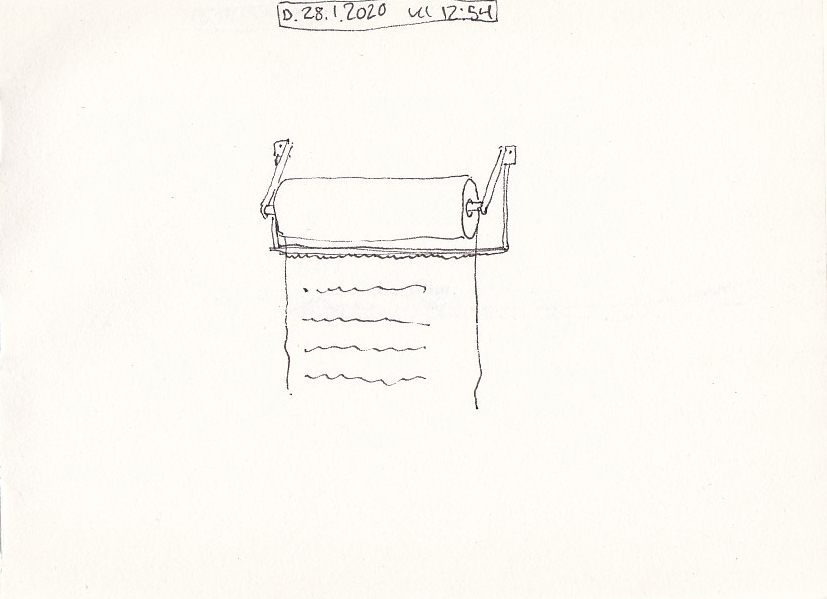 D. 28.1.2020 kl 12:54